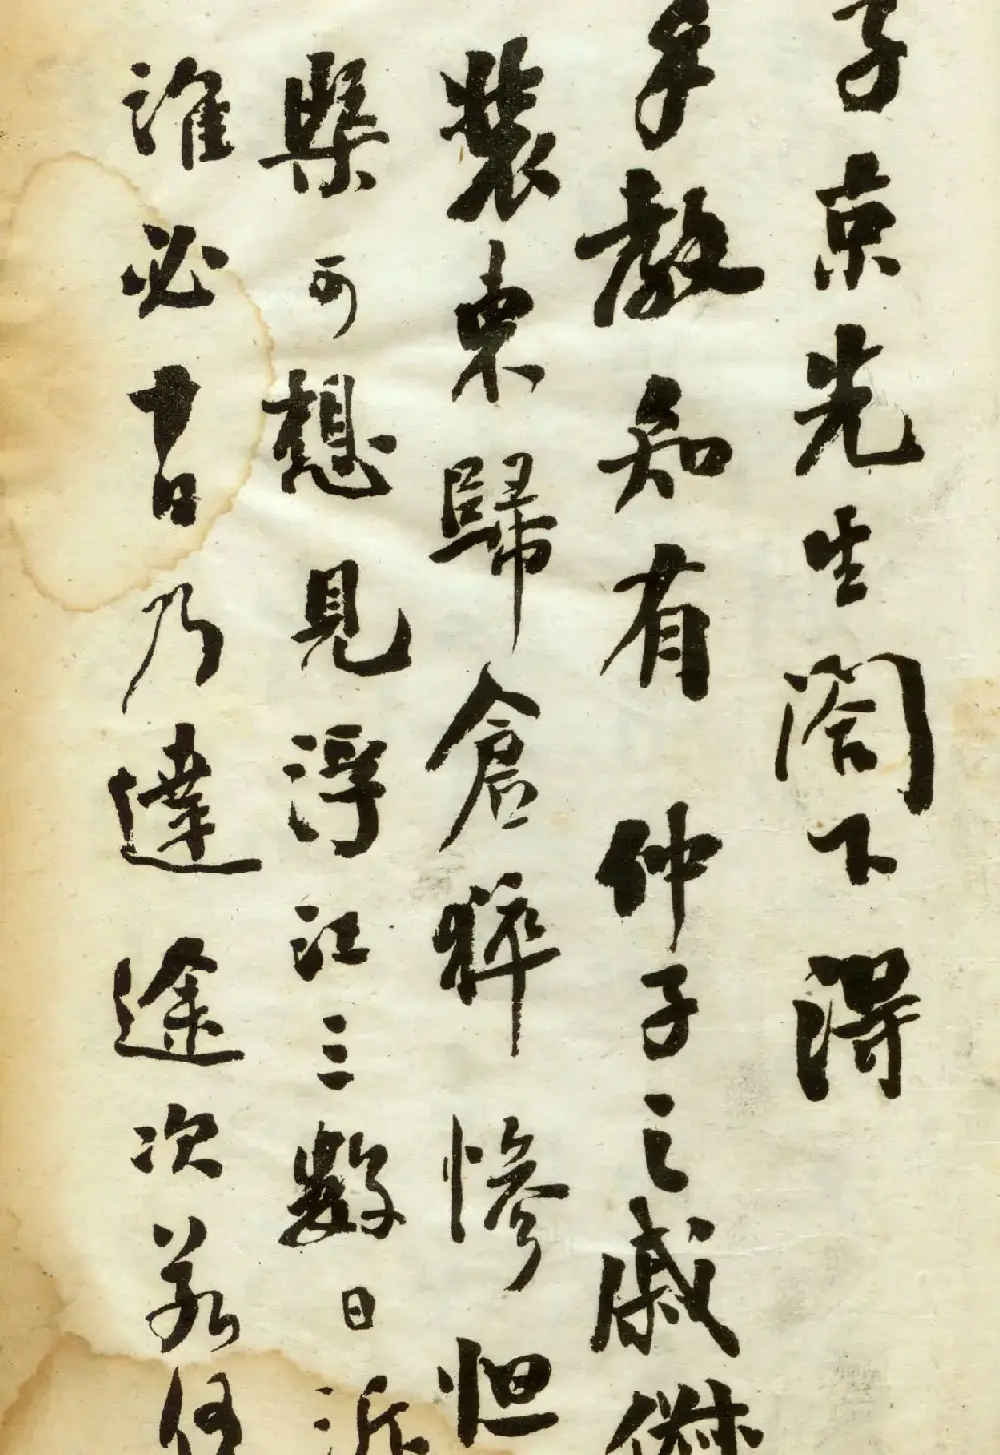 子京先生閣下得
手教知有仲子之戚
裝東歸倉猝慘怛
槩可想見浮江三數日泝
淮必十日乃達途次